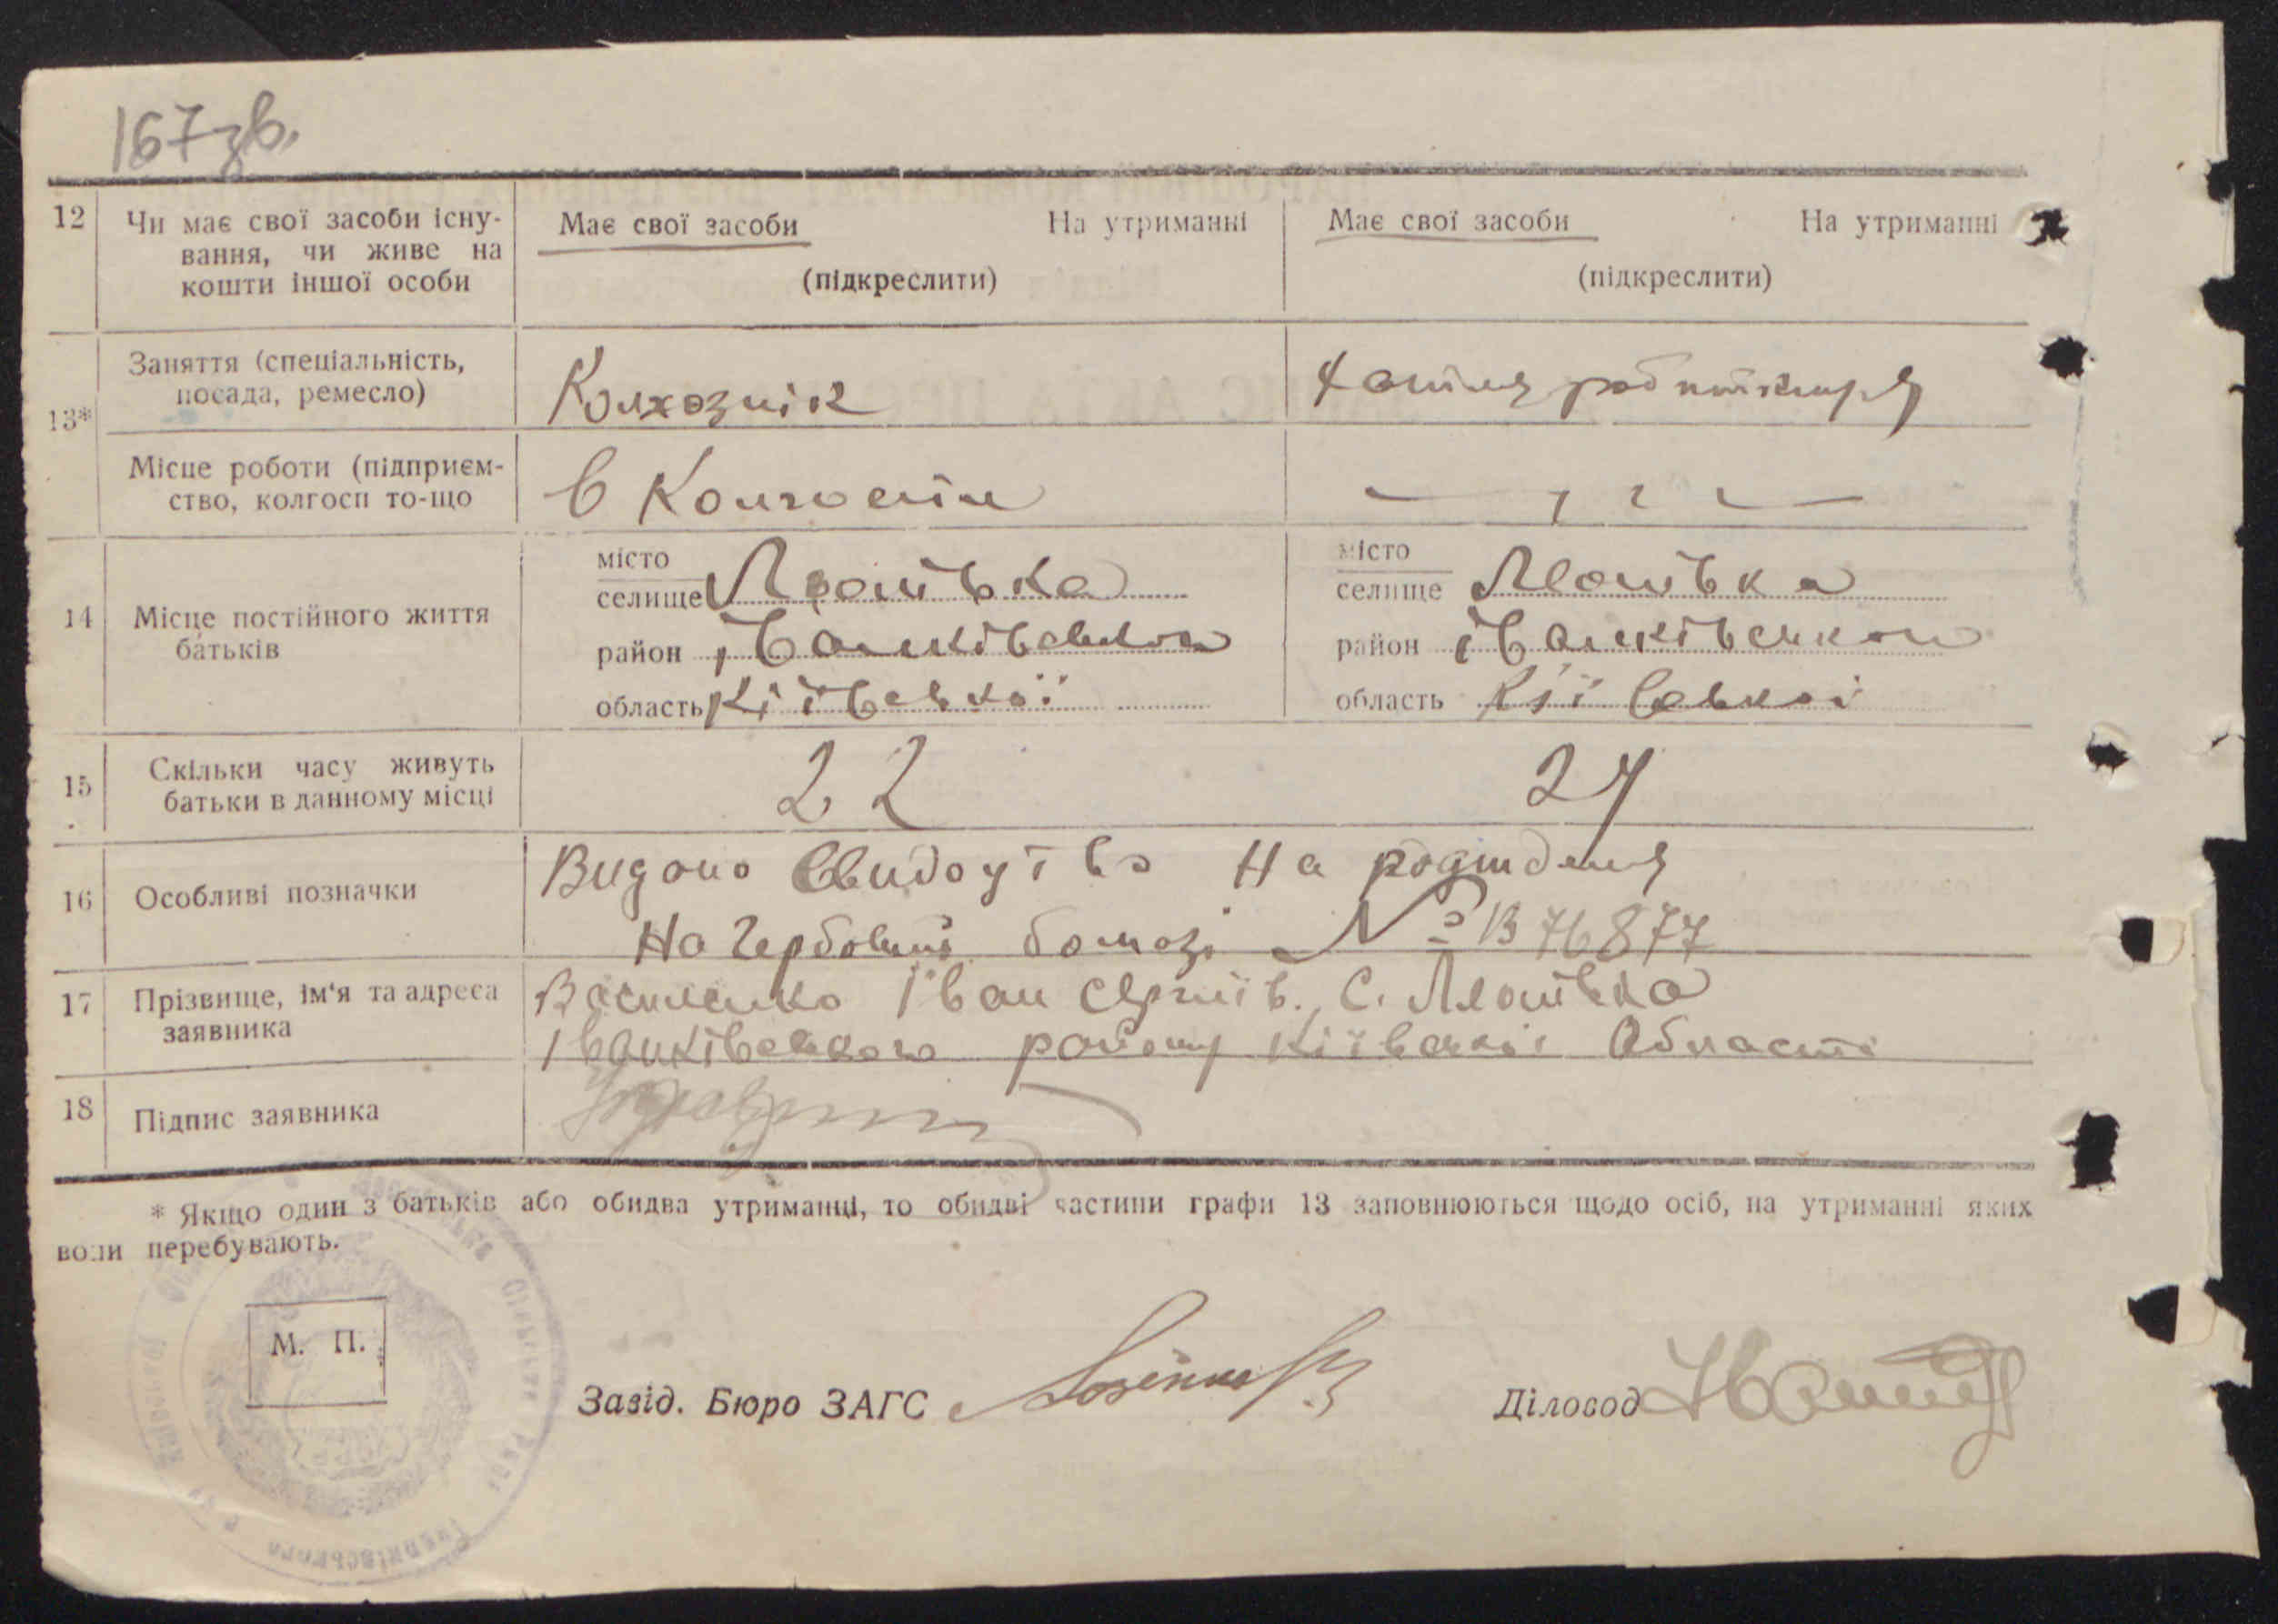 167 зв.
12 Чи має свої засоби існу-
вання, чи живе на
кошти іншої особи
Має свої засоби На утриманні
(підкреслити)
Має свої засоби На утриманні
(підкреслити)
13*
Заняття (спеціальність,
посада, ремесло)
Колхознік
Місце роботи (підприєм-
ство, колгосп то-що
в
14 Місце постійного життя
батьків
місто
селище
район Іванківський
область Кіївської
місто
селище
район Іванківський
область Кіївської
15 Скільки часу живуть
батьки в данному місці
22 24
16 Особливі позначки
Видано на
На Гербовій № В 76877
17 Прізвище, ім'я та адреса
заявника
Василенко Іван с.
Іванківського району Кіївської Області
18 Підпис заявника
* Якщо один з батьків або обидва утриманці, то обидві частини графи 13 заповнюються щодо осіб, на утриманні яких
вони перебувають.
М. П.
Завід. Бюро ЗАГС
Діловод